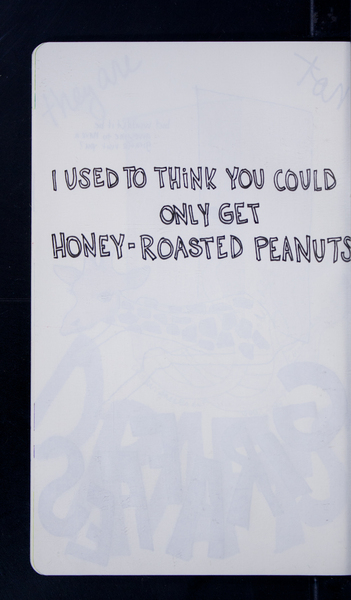 I USED TO THINK YOU COULD
ONLY GET
HONEY-ROASTED PEANUTS
they are